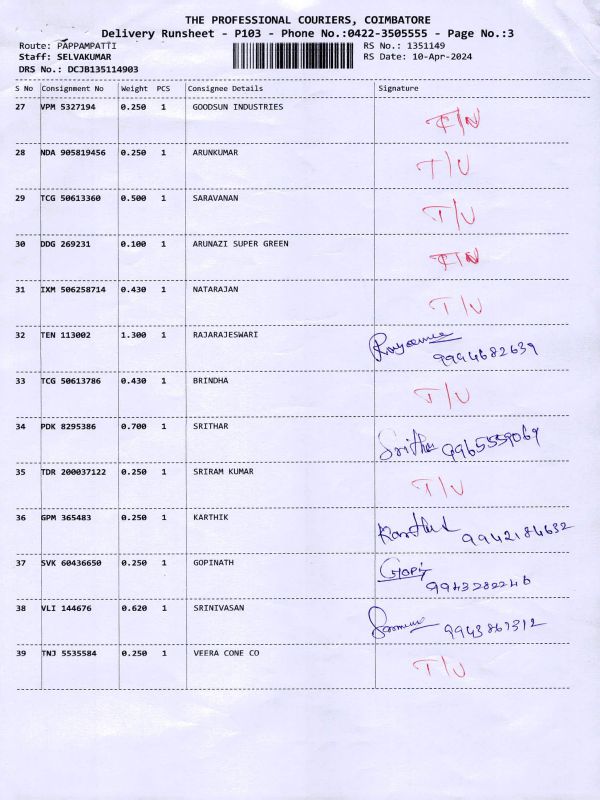 THE PROFESSIONAL COURIERS, COIMBATORE
Delivery Runsheet - P103 - Phone No.:0422-3505555 - Page No.:3
Route: PAPPAMPATTI RS No.: 1351149
Staff: SELVAKUMAR RS Date: 10-Apr-2024
DRS No.: DCJB135114903
S No Consignment No Weight PCS Consignee Details Signature
27 VPM 5327194 0.250 1 GOODSUN INDUSTRIES
28 NDA 905819456 0.250 1 ARUNKUMAR T/U
29 TCG 50613360 0.500 1 SARAVANAN T/U
30 DDG 269231 0.100 1 ARUNAZI SUPER GREEN
31 IXM 506258714 0.430 1 NATARAJAN T/U
32 TEN 113002 1.300 1 RAJARAJESWARI
9994682639
33 TCG 50613786 0.430 1 BRINDHA T/U
34 PDK 8295386 0.700 1 SRITHAR Srithar 9965559069
35 TDR 200037122 0.250 1 SRIRAM KUMAR T/U
36 GPM 365483 0.250 1 KARTHIK 9942184632
37 SVK 60436650 0.250 1 GOPINATH GOPI
9943282246
38 VLI 144676 0.620 1 SRINIVASAN 9943861312
39 TNJ 5535584 0.250 1 VEERA CONE CO T/U